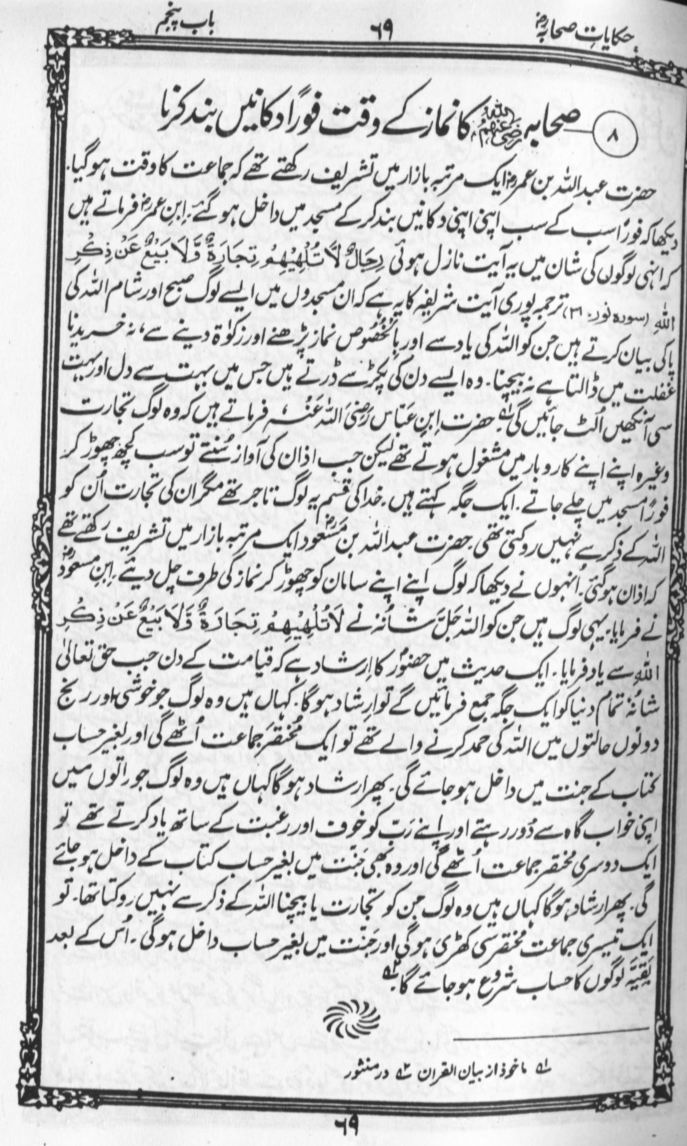 حکایات صحابہؓ ۶۹ باب پنجم
۸ صحابہ رضی اللہ عنہم کا نماز کے وقت فوراً دکانیں بند کرنا
حضرت عبداللہ بن عمرؓ ایک مرتبہ بازار میں تشریف رکھتے تھے کہ جماعت کا وقت ہوگیا۔
دیکھا کہ فوراً سب کے سب اپنی اپنی دکانیں بند کرکے مسجد میں داخل ہوگئے۔ ابن عمرؓ فرماتے ہیں
کہ انہی لوگوں کی شان میں یہ آیت نازل ہوئی رِجَالٌ لَّا تُلْهِيْهِمْ تِجَارَةٌ وَّلَا بَيْعٌ عَنْ ذِكْرِ
اللهِ (سورہ نور: ۳۱) ترجمہ پوری آیت شریفہ کا یہ ہے کہ ان مسجدوں میں ایسے لوگ صبح اور شام اللہ کی
پاکی بیان کرتے ہیں جن کو اللہ کی یاد سے اور بالخصوص نماز پڑھنے اور زکوٰۃ دینے سے، نہ خریدنا
غفلت میں ڈالتا ہے نہ بیچنا۔ وہ ایسے دن کی پکڑ سے ڈرتے ہیں جس میں بہت سے دل اور بہت
سی آنکھیں اُلٹ جائیں گی۔ حضرت ابن عباس رضی اللہ عنہ، فرماتے ہیں کہ وہ لوگ تجارت
وغیرہ اپنے اپنے کاروبار میں مشغول ہوتے تھے لیکن جب اذان کی آواز سنتے تو سب کچھ چھوڑ کر
فوراً مسجد میں چلے جاتے۔ ایک جگہ کہتے ہیں۔ خدا کی قسم یہ لوگ تاجر تھے مگر ان کی تجارت اُن کو
اللہ کے ذکر سے نہیں روکتی تھی۔ حضرت عبداللہ بن مسعودؓ ایک مرتبہ بازار میں تشریف رکھتے تھے
کہ اذان ہوگئی۔ اُنہوں نے دیکھا کہ لوگ اپنے اپنے سامان کو چھوڑ کر نماز کی طرف چل دیئے۔ ابن مسعودؓ
نے فرمایا۔ یہی لوگ ہیں جن کو اللہ جَلَّ شَانُہٗ نے لَا تُلْهِيْهِمْ تِجَارَةٌ وَّلَا بَيْعٌ عَنْ ذِكْرِ
اللهِ سے یاد فرمایا۔ ایک حدیث میں حضورؐ کا ارشاد ہے کہ قیامت کے دن جب حق تعالیٰ
شانہٗ تمام دنیا کو ایک جگہ جمع فرمائیں گے تو ارشاد ہوگا۔ کہاں ہیں وہ لوگ جو خوشی اور رنج
دونوں حالتوں میں اللہ کی حمد کرنے والے تھے تو ایک مختصر جماعت اُٹھے گی اور بغیر حساب
کتاب کے جنت میں داخل ہوجائے گی۔ پھر ارشاد ہوگا کہاں ہیں وہ لوگ جو راتوں میں
اپنی خواب گاہ سے دُور رہتے اور اپنے رَب کو خوف اور رغبت کے ساتھ یاد کرتے تھے تو
ایک دوسری مختصر جماعت اُٹھے گی اور وہ بھی جنت میں بغیر حساب کتاب کے داخل ہوجائے
گی۔ پھر ارشاد ہوگا کہاں ہیں وہ لوگ جن کو تجارت یا بیچنا اللہ کے ذکر سے نہیں روکتا تھا۔ تو
ایک تیسری جماعت مختصر سی کھڑی ہوگی اور جنت میں بغیر حساب داخل ہوگی۔ اُس کے بعد
بَقِیَّہ لوگوں کا حساب شروع ہوجائے گا۔
؎۱ ماخوذ از بیان القرآن ؎۲ درمنثور
۶۹